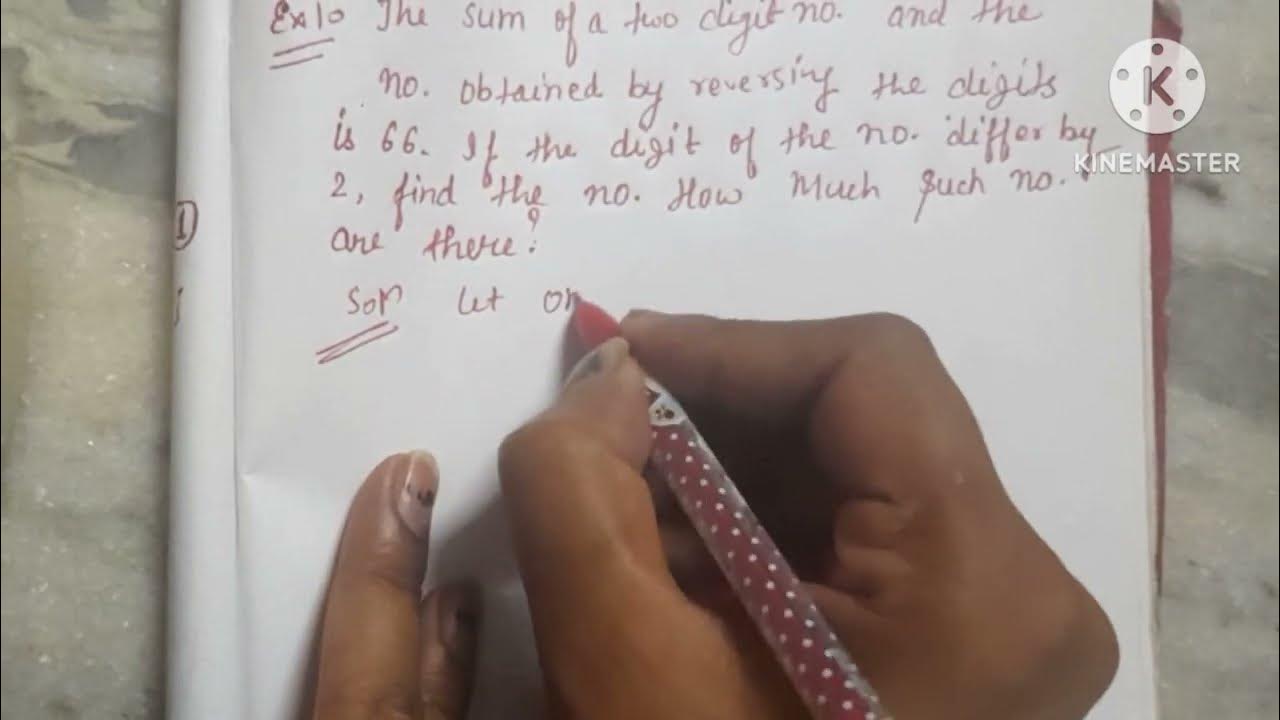 Ex10 The sum of a two digit no. and the
no. obtained by reversing the digits
is 66. If the digit of the no. differ by
2, find the no. How Much Such no.
are there?
Soln Let on
1
K
KINEMASTER